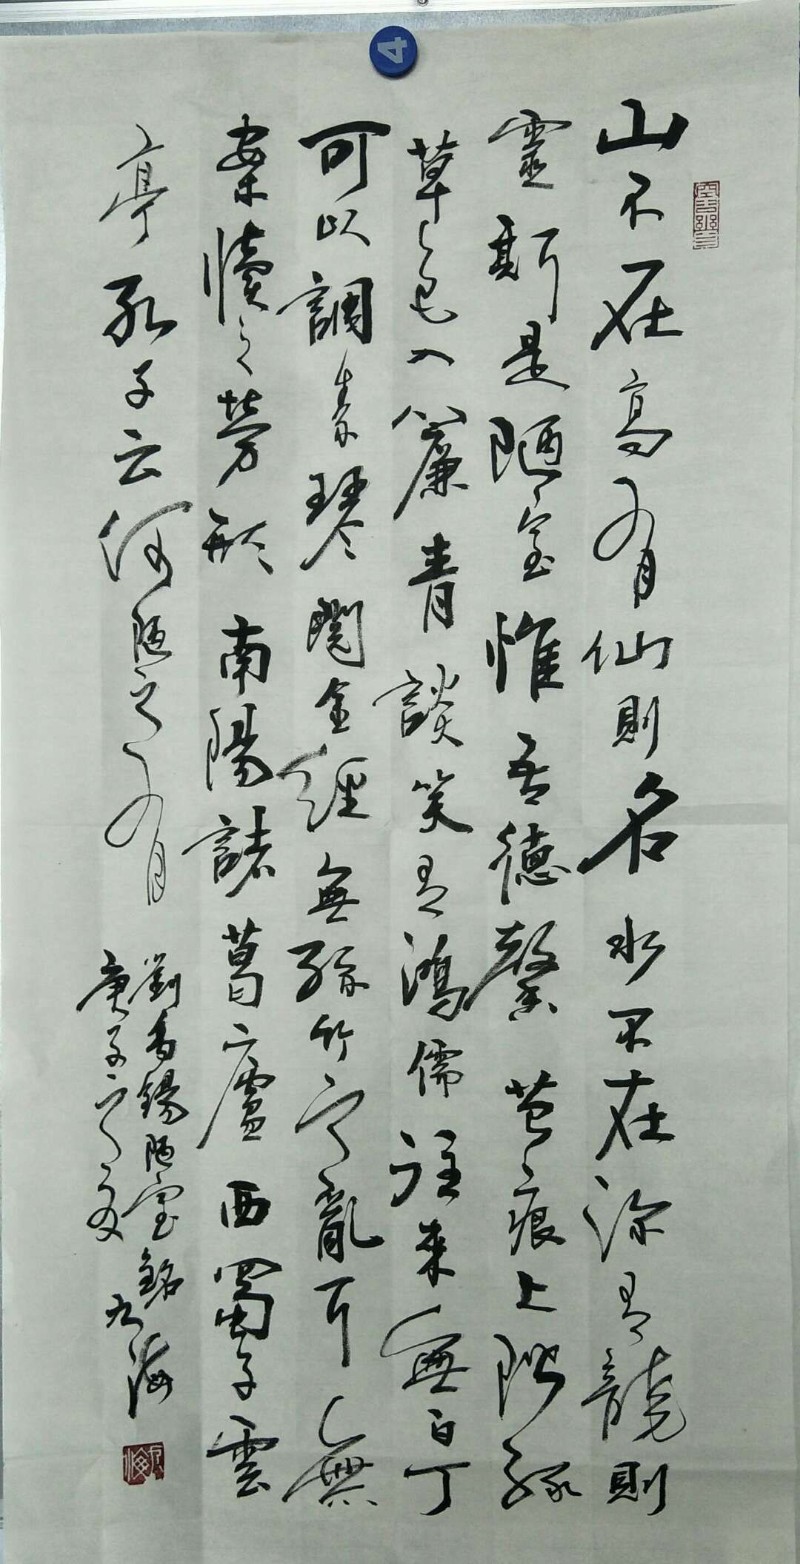 4
山不在高有仙則名水不在深有龍則
靈斯是陋室惟吾德馨苔痕上階綠
草色入簾青談笑有鴻儒往來無白丁
可以調素琴閱金經無絲竹之亂耳無
案牘之勞形南陽諸葛廬西蜀子雲
亭孔子云何陋之有
劉禹錫陋室銘
庚子之夏
九海